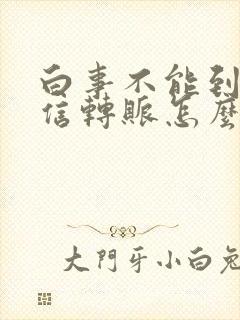 白事不能到
信轉賬怎麼
大門牙小白兔